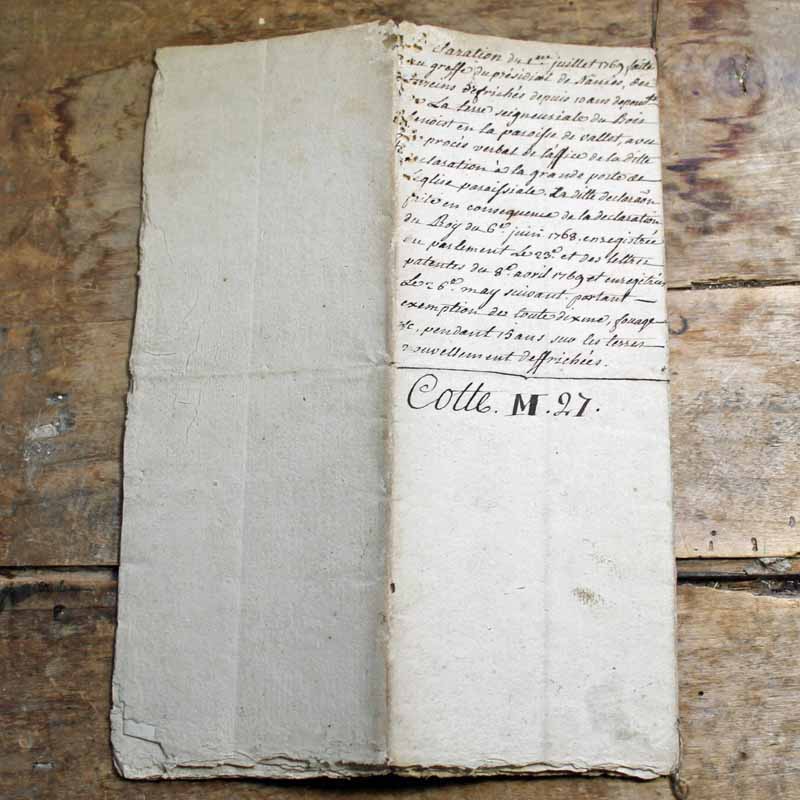 claration du 1er juillet 1769, faite
au greffe du présidial de Nantes, des
terreins défrichés depuis 10 ans depend.ts
de La terre seigneuriale du Bois
benoist en la paroisse de vallet, avec
procés verbal de l'affice de la ditte
declaration à la grande porte de
L'eglise paroissiale. La ditte declaraõn
faite en consequence de la declaration
du Roy du 6e. juin 1768. enregistrée
au parlement Le 23e. et des lettres
patentes du 8e. avril 1769 et enregitrées
Le 26e. may suivant, portant —
exemption de toute dixme, fouage
&c, pendant 15 ans sur les terres
nouvellement deffrichées.
Cotte. M. 27.